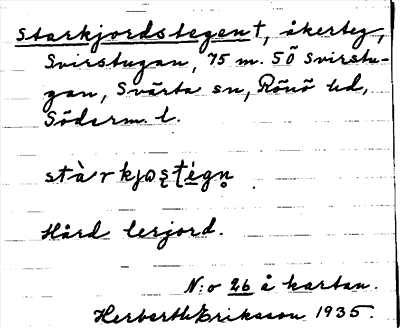 Starkjordstegen †, åkerteg,
Svirstugan, 75 m. SÖ Svirstu-
gan, Svärta sn, Rönö hd,
Söderm. l.
Hård lerjord.
N:o 26 å kartan.
Herberth Eriksson 1935.